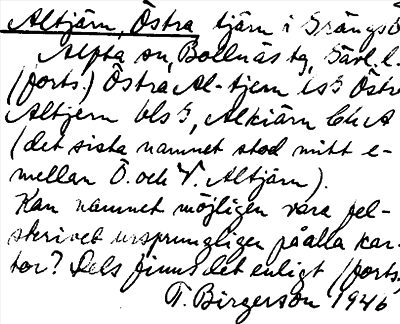 Altjärn, Östra tjärn i Grängsö
Alfta sn, Bollnäs tg, Gävl. l.
(forts.) Östra Al-tjern LsS Östr
Altjern bls S, Alkiärn Ch A
(det sista namnet stod mitt e-
mellan Ö. och V. Altjärn).
Kan namnet möjligen vara fel-
skrivet ursprungligen på alla kar-
tor? Dels finns det enligt (forts.
T. Birgerson 1946